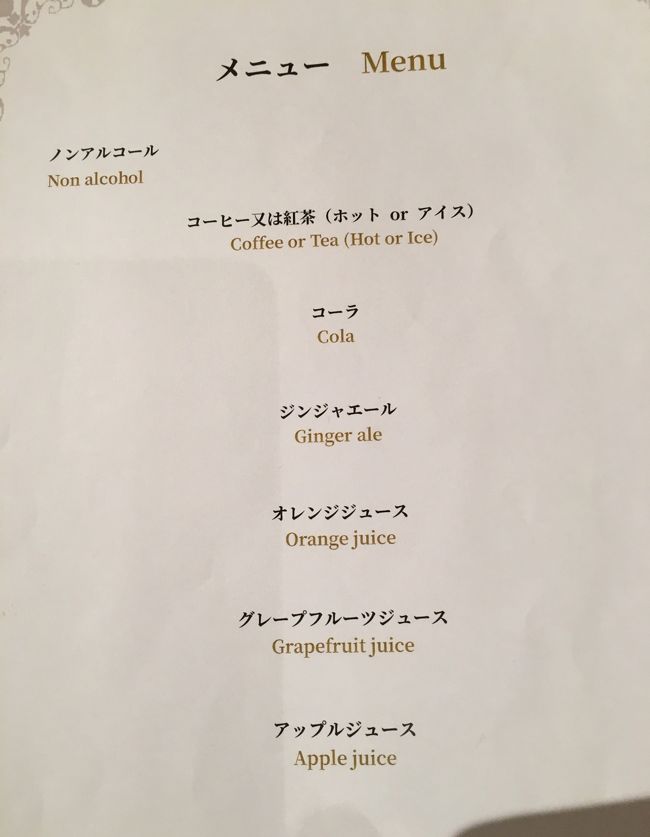 メニュー Menu
ノンアルコール
Non alcohol
コーヒー又は紅茶（ホット or アイス）
Coffee or Tea (Hot or Ice)
コーラ
Cola
ジンジャエール
Ginger ale
オレンジジュース
Orange juice
グレープフルーツジュース
Grapefruit juice
アップルジュース
Apple juice